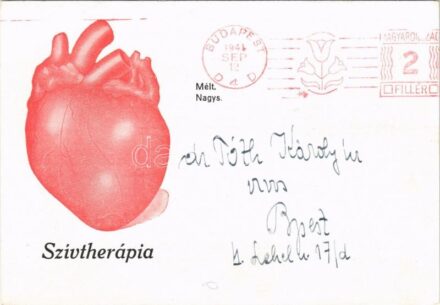 BUDAPEST
1941
SEP
12
MAGYARORSZÁG
2
FILLÉR
Mélt.
Nagys.
dr Tóth Károly
orvos
Bpest
Lehel u 17/d
Szívtherápia